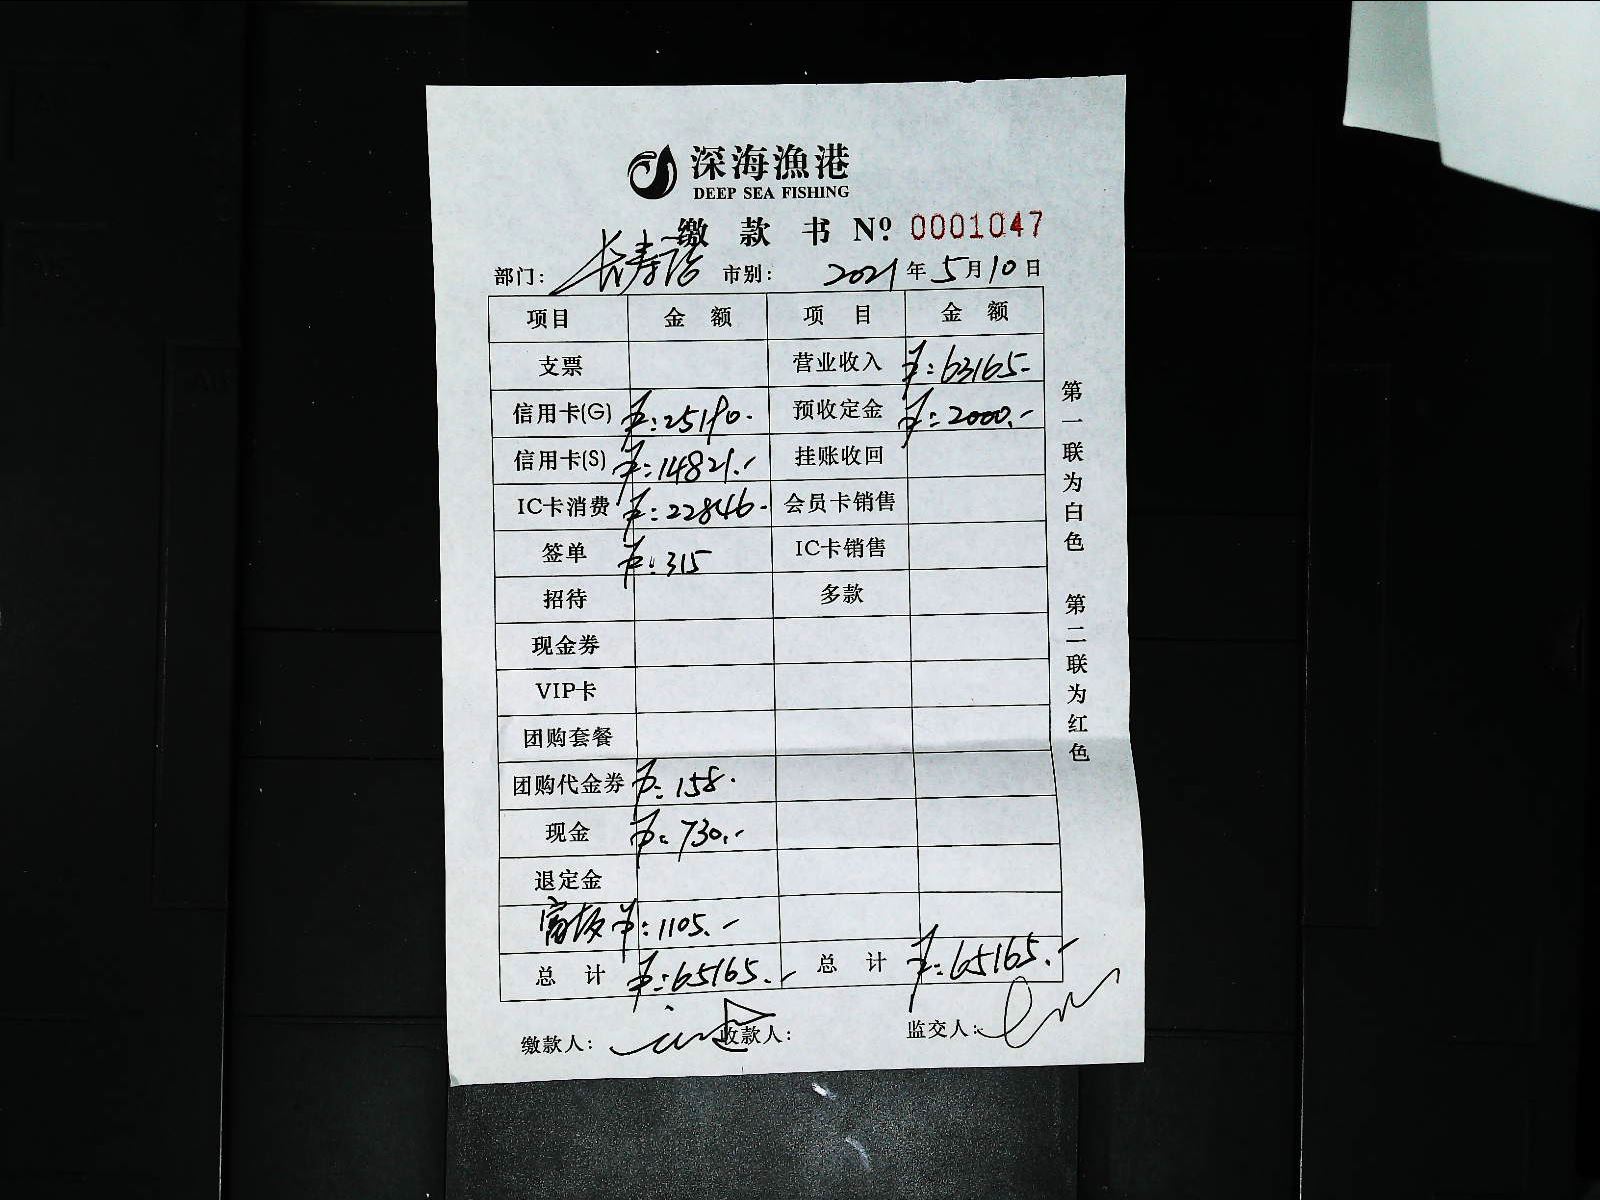 深海漁港
DEEP SEA FISHING
缴款书 Nº 0001047
部门: 长寿路 市别: 2021年5月10日
项目 金额 项目 金额
支票 营业收入 ¥:63165-
信用卡(G) ¥:25190. 预收定金 ¥:2000.-
信用卡(S) ¥:14821.- 挂账收回
IC卡消费 ¥:22846- 会员卡销售
签单 ¥:315 IC卡销售
招待 多款
现金券
VIP卡
团购套餐
团购代金券 ¥:158.
现金 ¥:730.-
退定金
¥:1105.-
总计 ¥:65165.- 总计 ¥:65165.-
缴款人: 收款人: 监交人:
第一联为白色 第二联为红色